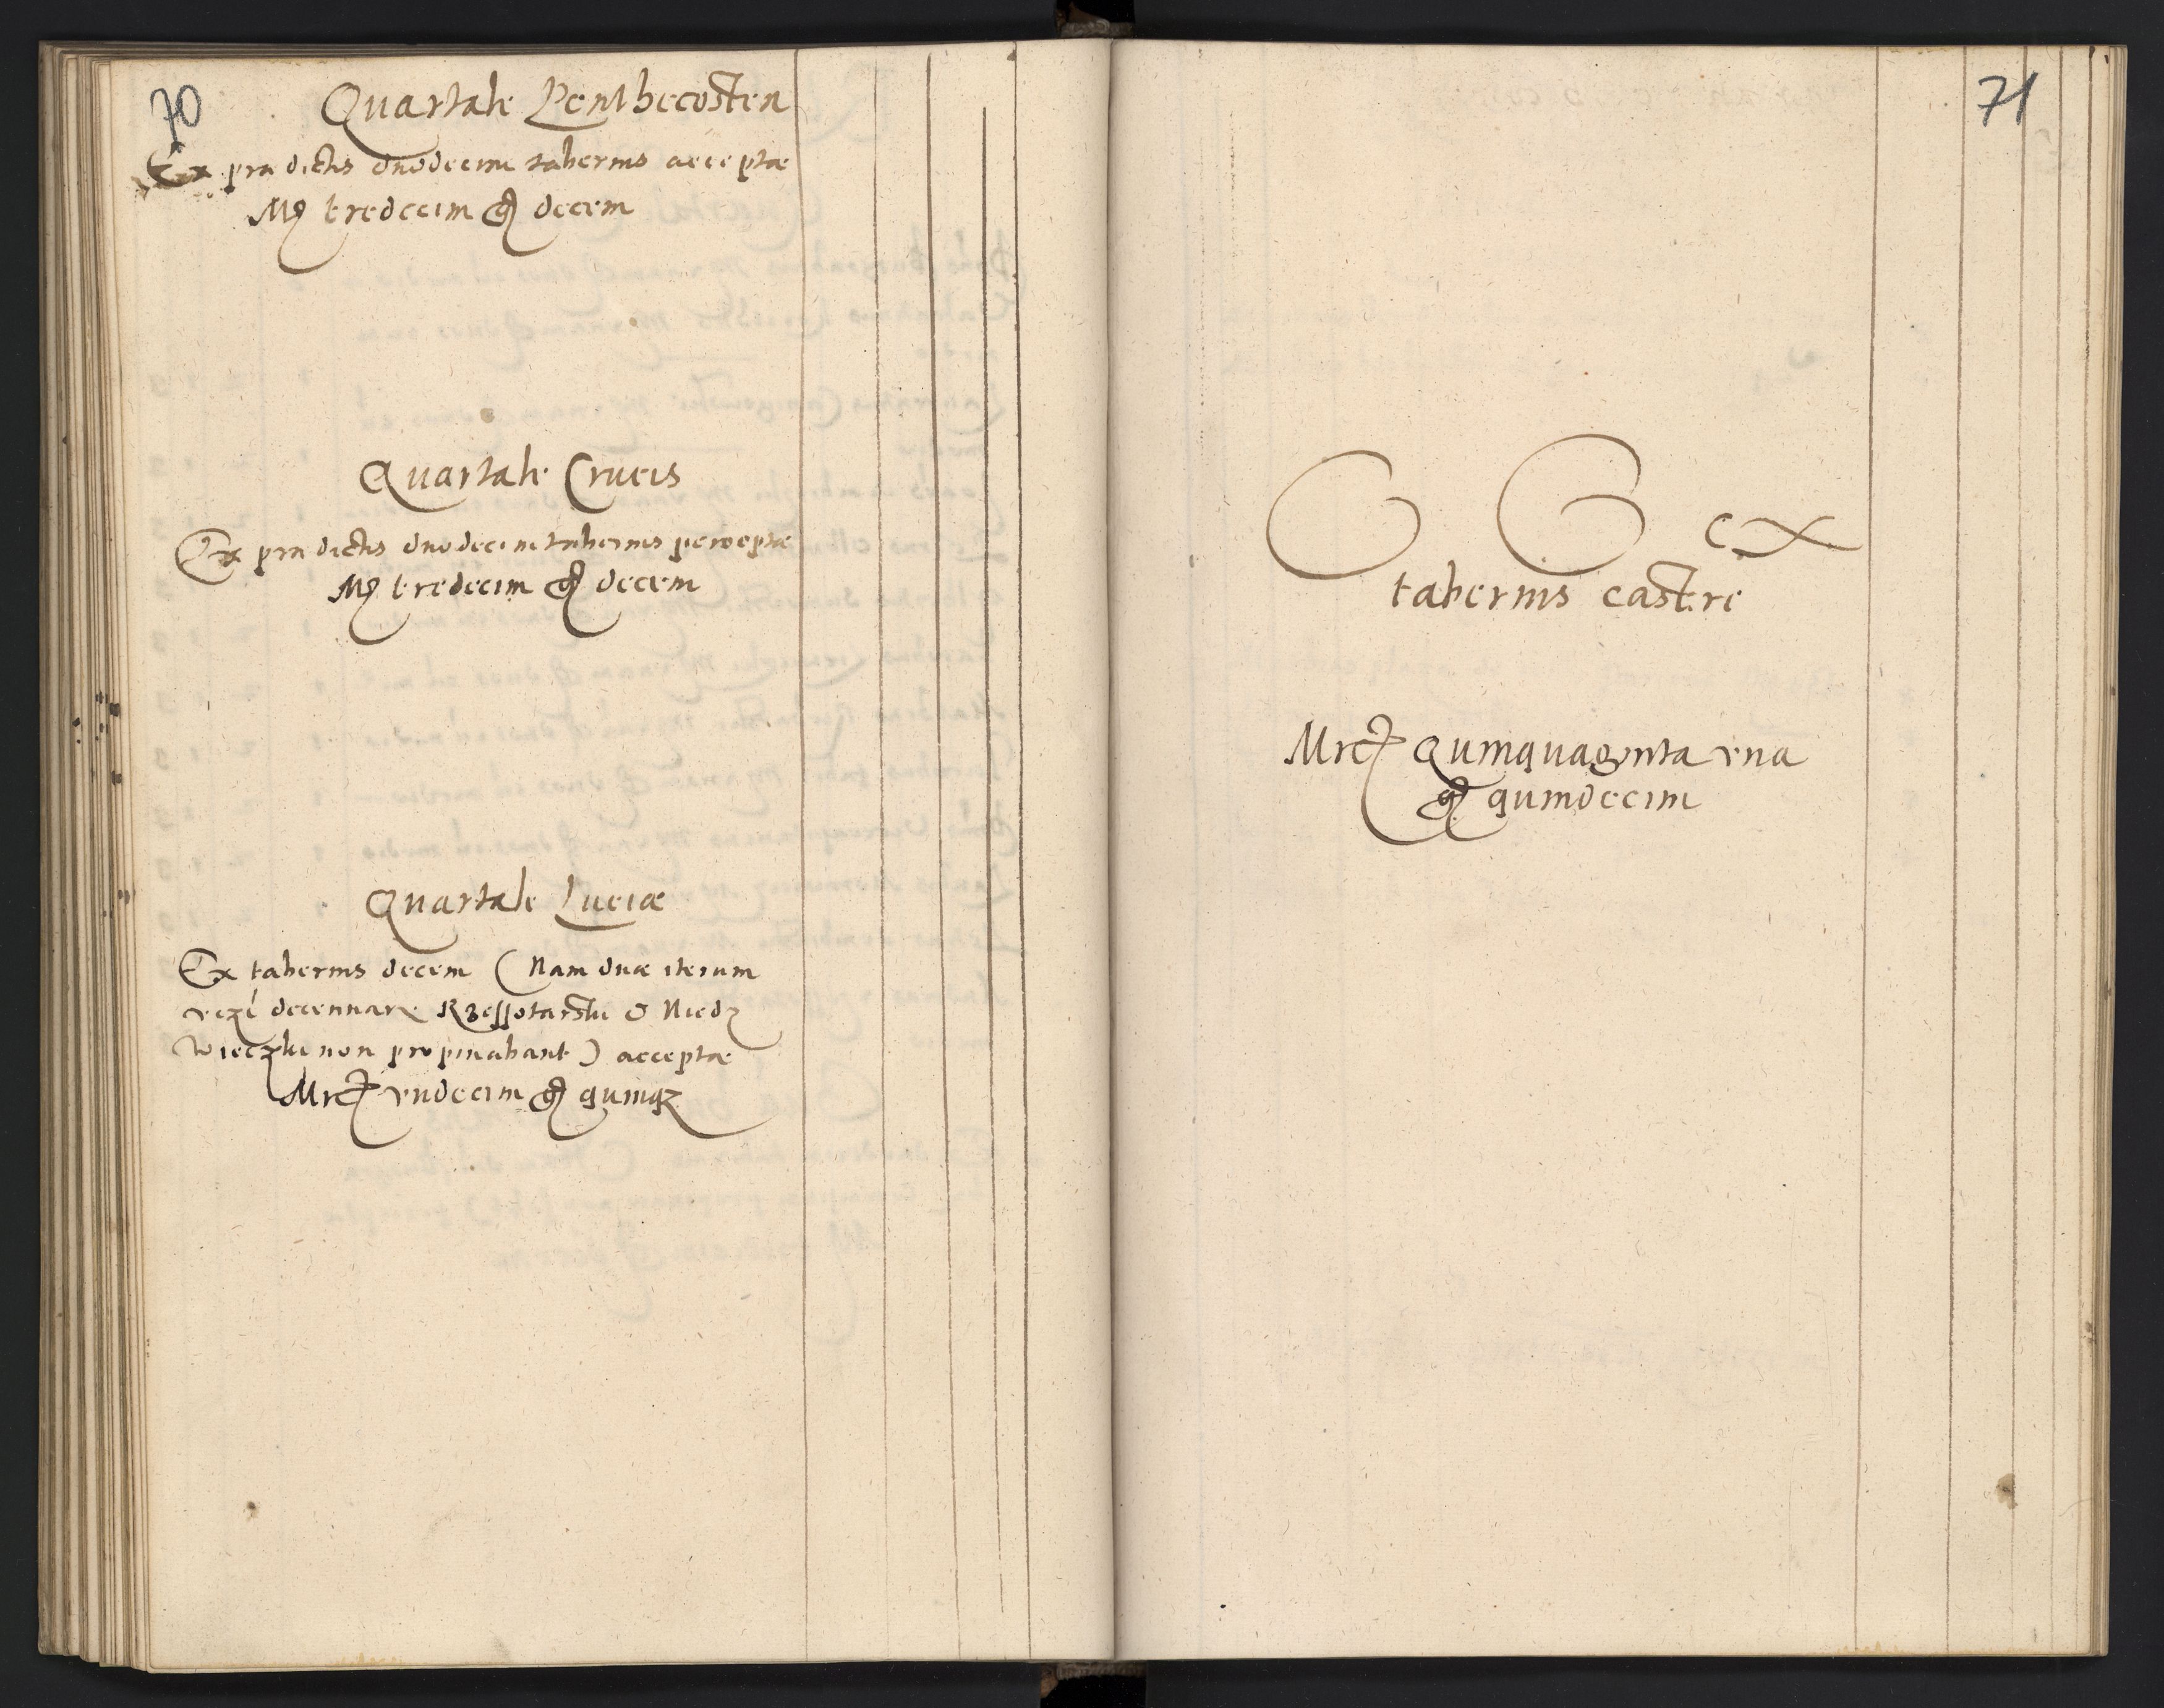 70
Quartale Penthecosten
Ex prædictis duodecim tabernis acceptæ
Mr tredecim gr decem
Quartale Crucis
Ex prædictis duodecim tabernis perceptæ
Mr tredecim gr decem
Quartale Luciæ
Ex tabernis decem (Nam duæ iterum
decennare Rzessotarski & Niedz
wieczki non propinabant) acceptæ
Mrc undecim gr quinqz
71
ex
tabernis castre
Mrc quinquaginta vna
gr quindecim